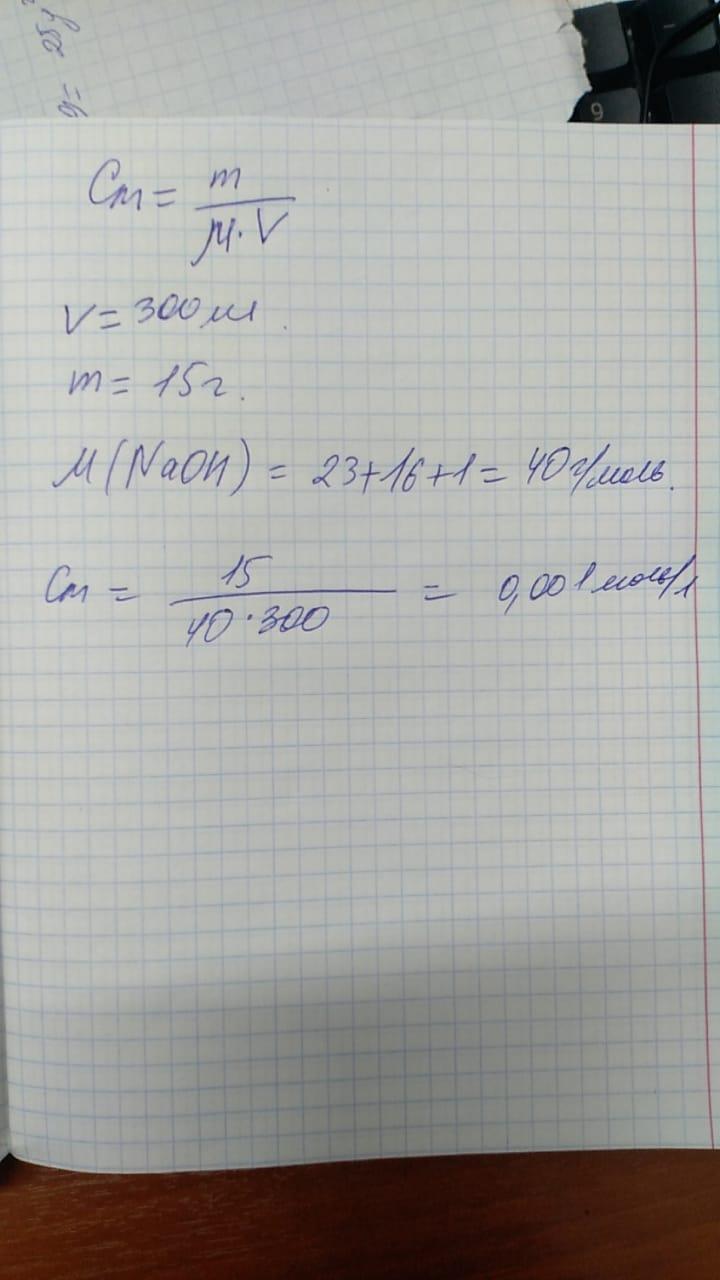 9
Cm = m / M·V
V = 300 мл.
m = 15 г.
M(NaOH) = 23+16+1 = 40 г/моль.
Cm = 15 / 40·300 = 0,001 моль/л